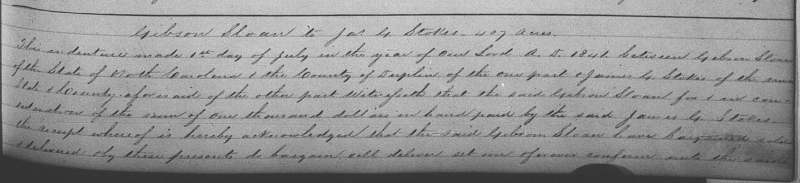 Gibson Sloan to Jas G Stokes 407 Acres.
This indenture made 1st day of July in the year of Our Lord A. D. 1841. between Gibson Sloan
of the State of North Carolina & the County of Duplin of the one part & James G Stokes of the same
State & County aforesaid of the other part Witnesseth that the said Gibson Sloan for & in con-
sideration of the sum of One thousand dollars in hand paid by the said James G. Stokes
the receipt whereof is hereby acknowledged that the said Gibson Sloan have bargained sold
& delivered & by these presents do bargain sell deliver set over & forever confirm unto the said